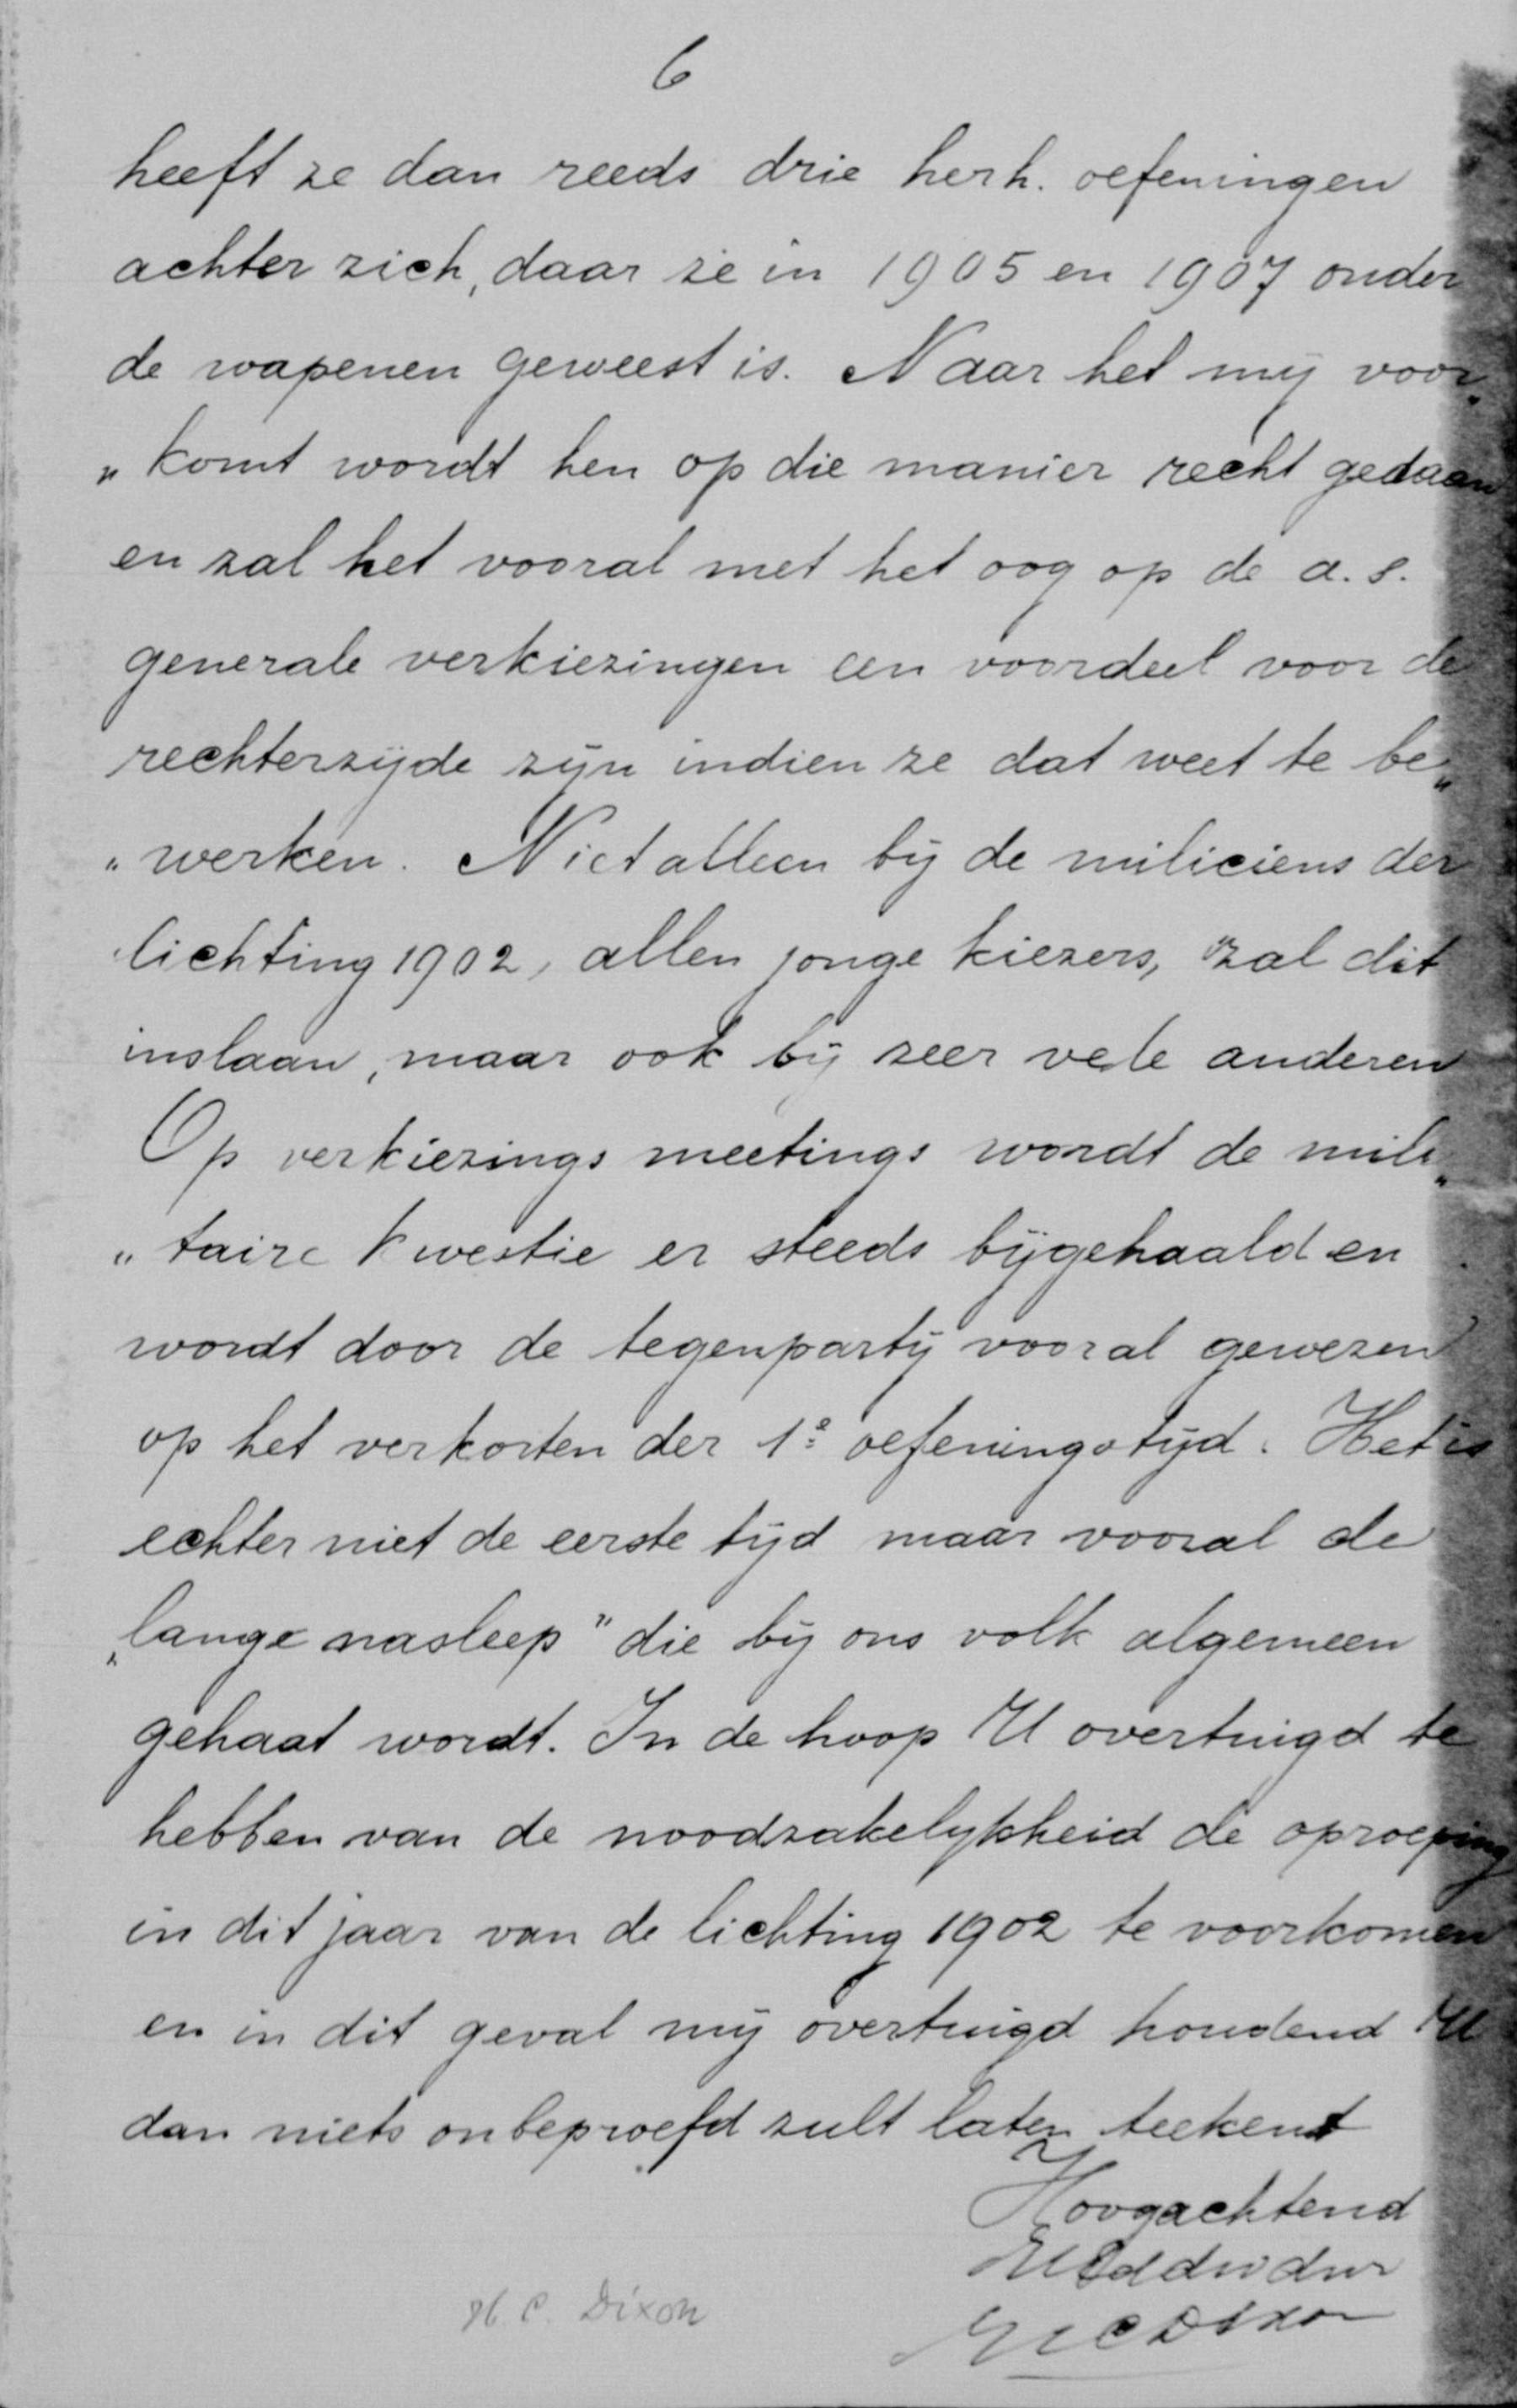 6
heeft ze dan reeds drie herh. oefeningen
achter zich, daar ze in 1905 en 1907 onder
de wapenen geweest is. Naar het mij voor„
„komt wordt hen op die manier recht gedaan
en zal het vooral met het oog op de a.s.
generale verkiezingen een voordeel voor de
rechterzijde zijn indien ze dat weet te be„
„werken. Niet alleen bij de miliciens der
lichting 1902, allen jonge kiezers, zal dit
inslaan, maar ook bij zeer vele anderen
Op verkiezings meetings wordt de mili„
„taire kwestie er steeds bijgehaald en
wordt door de tegenpartij vooral gewezen
op het verkorten der 1e oefeningstijd. Het is
echter niet de eerste tijd maar vooral de
„lange nasleep" die bij ons volk algemeen
gehaat wordt. In de hoop U overtuigd te
hebben van de noodzakelijkheid de oproeping
in dit jaar van de lichting 1902 te voorkomen
en in dit geval mij overtuigd houdend U
dan niets onbeproefd zult laten teekent
Hoogachtend
H. C. Dixon